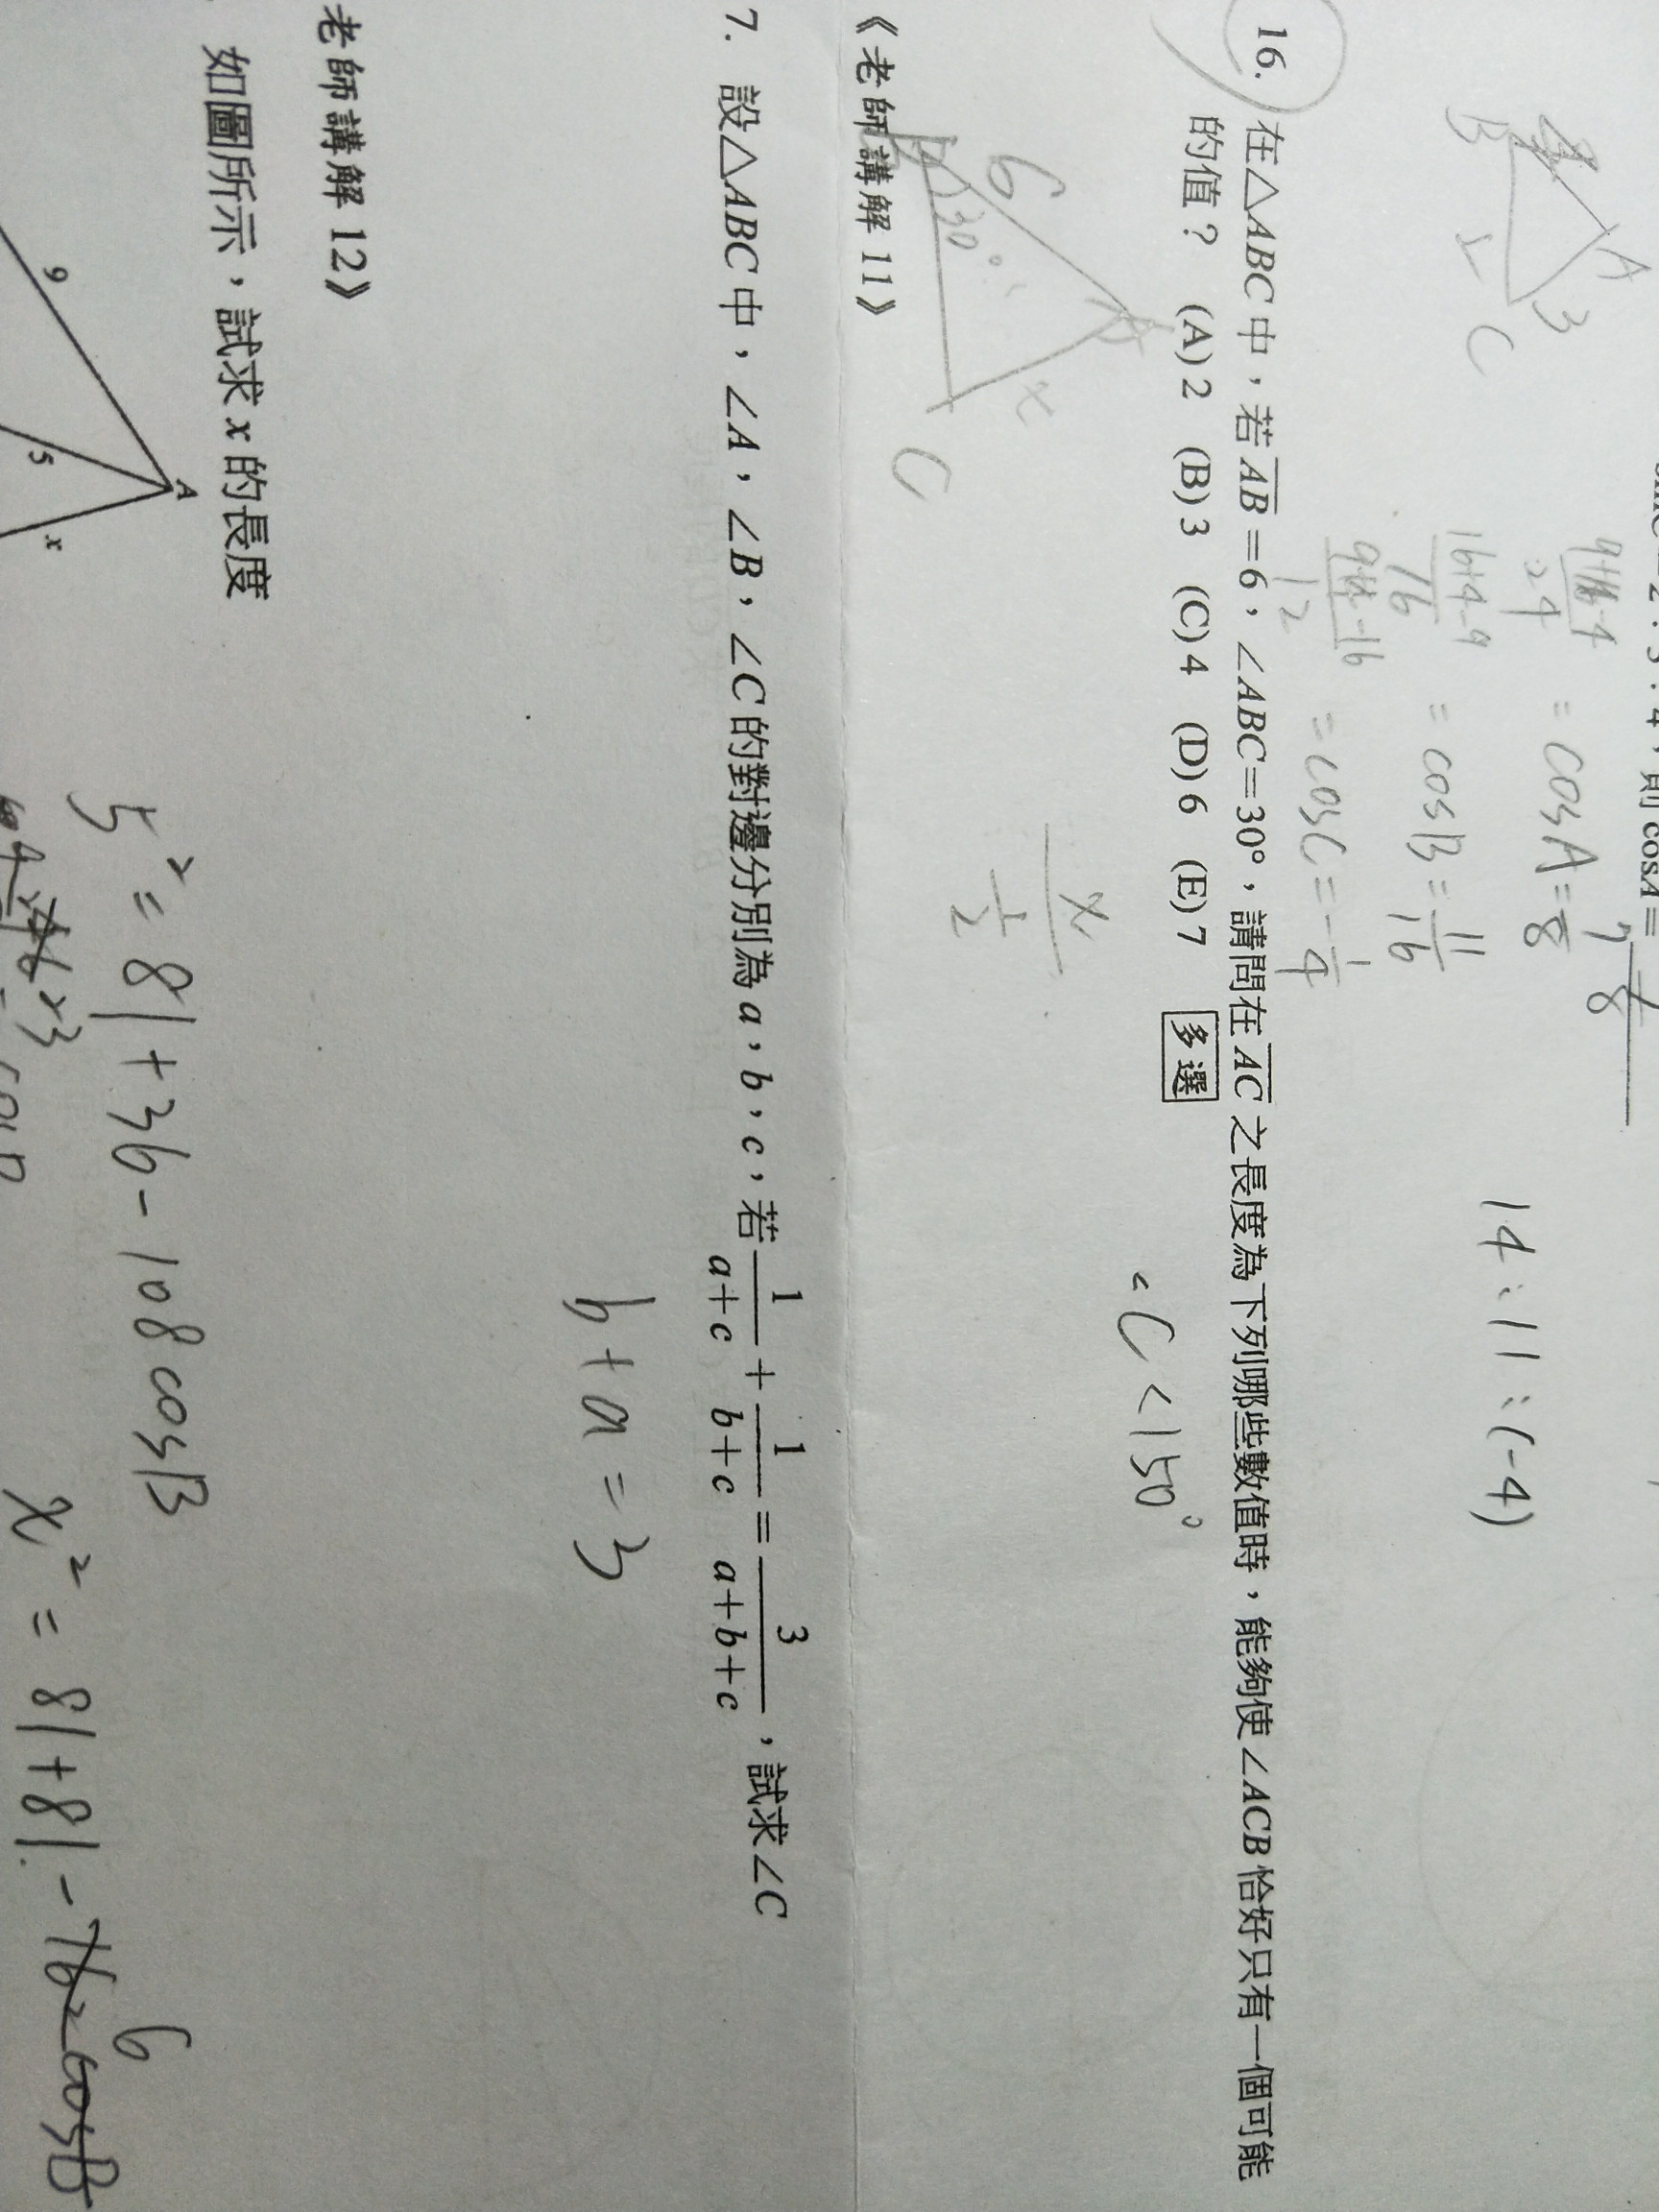 sinC=2：3：4，則cosA= 7/8
9+16-4/24 = cosA = 7/8
16+4-9/16 = cosB = 11/16
9+4-16/12 = cosC = -1/4
14：11：(-4)
A
B
C
2
3
16. 在△ABC中，若AB=6，∠ABC=30°，請問在AC之長度為下列哪些數值時，能夠使∠ACB恰好只有一個可能
的值？ (A)2 (B)3 (C)4 (D)6 (E)7 多選
<C<150°
6
30°
A
x
C
x
1/2
《老師講解 11》
7. 設△ABC中，∠A，∠B，∠C的對邊分別為a，b，c，若1/(a+c)+1/(b+c)=3/(a+b+c)，試求∠C
b+a=3
老師講解 12》
如圖所示，試求x的長度
9
A
5
x
5²=81+36-108cosB
x²=81+81-162cosB
6